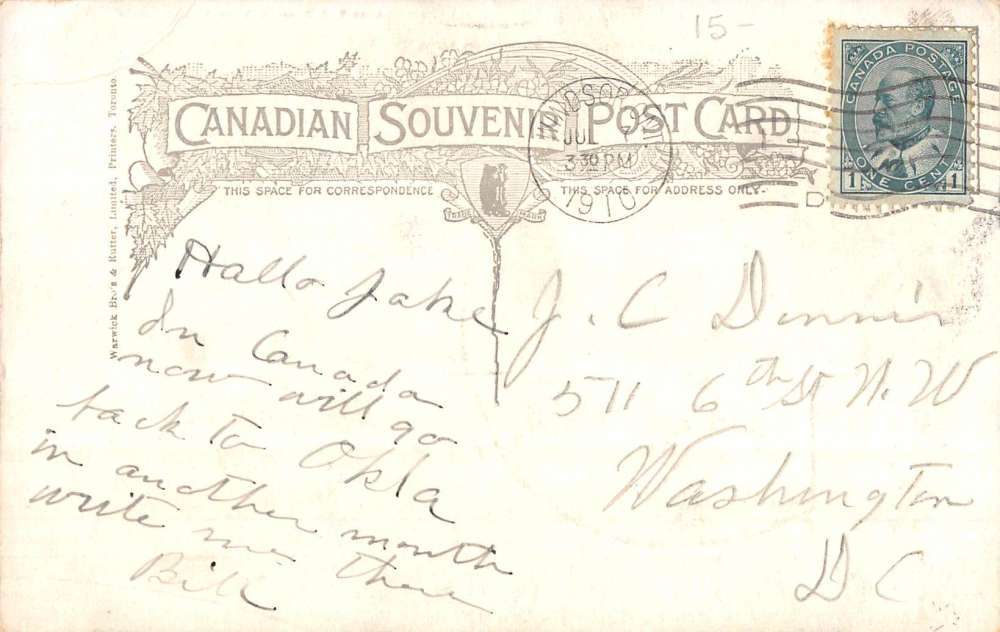 15-
CANADIAN SOUVENIR POST CARD
THIS SPACE FOR CORRESPONDENCE
THIS SPACE FOR ADDRESS ONLY.
TRADE MARK
Warwick Bro's & Rutter, Limited, Printers, Toronto.
CANADA POSTAGE
1 ONE CENT 1
WINDSOR
JUL
3 30 PM
1910
Hallo Jake
In Canada
now will go
back to Okla
in another month
write me there
Bill
J. C Dennis
511 6th St N. W
Washington
D C